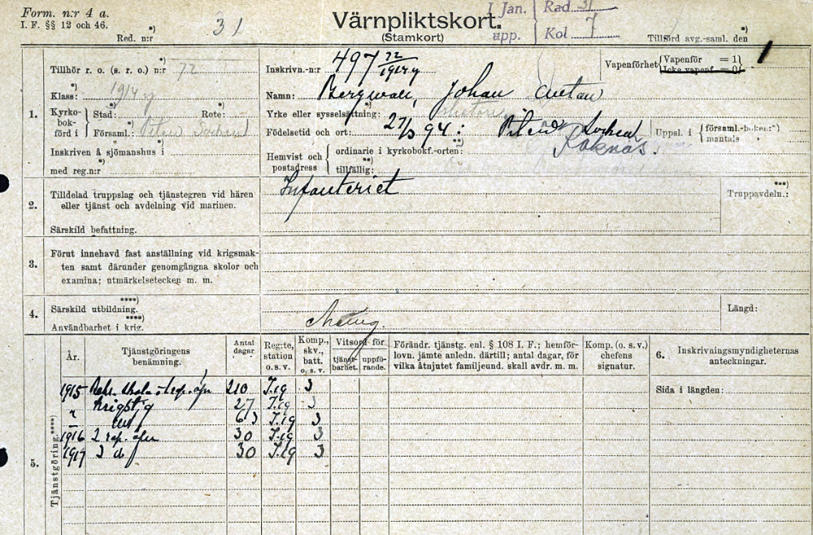 Form. n:r 4 a.
I. F. §§ 12 och 46.
Red. n:r *) 31
Värnpliktskort.
(Stamkort)
I Jan. Rad. 31
upp. Kol 7
Tillförd avg.-saml. den
1
Tillhör r. o. (s. r. o.) n:r 72 *)
Klass: 1914
Kyrko-bok-förd i { Stad: Rote:
Församl.: Piteå
Inskriven å sjömanshus i
med reg.n:r
1.
Inskrivn.-n:r 497 72/1914
Namn: Bergwall, Johan
Yrke eller sysselsättning: **)
Födelsetid och ort: 27/3 94: Piteå
Roknäs.
Hemvist och postadress { ordinarie i kyrkobokf.-orten:
tillfällig: **)
Vapenförhet { Vapenför = 1
Icke vapenf. = 0
Uppsl. i { församl.-boken: **)
mantals
2.
Tilldelad truppslag och tjänstegren vid hären
eller tjänst och avdelning vid marinen.
Särskild befattning.
Infanteriet
Truppavdeln.: ***)
3.
Förut innehavd fast anställning vid krigsmak-
ten samt därunder genomgångna skolor och
examina; utmärkelsetecken m. m.
4.
Särskild utbildning. ****)
Användbarhet i krig. ****)
Längd:
5.
Tjänstgöring. ****)
År.
Tjänstgöringens
benämning.
Antal
dagar
Reg:te,
station
o. s. v.
Komp.,
skv.,
batt.
o. s. v.
Vitsord för
tjänst-
barhet.
uppfö-
rande.
Förändr. tjänstg. enl. § 108 I. F.; hemför-
lovn. jämte anledn. därtill; antal dagar, för
vilka åtnjutet familjeund. skall avdr. m. m.
Komp. (o. s. v.)
chefens
signatur.
6. Inskrivningsmyndigheternas
anteckningar.
Sida i längden:
1915 210 I.19 3
" 27 I.19 3
" 63 I.19 3
1916 2 rep. öfn 30 I.19 3
1917 3 d 30 I.19 3